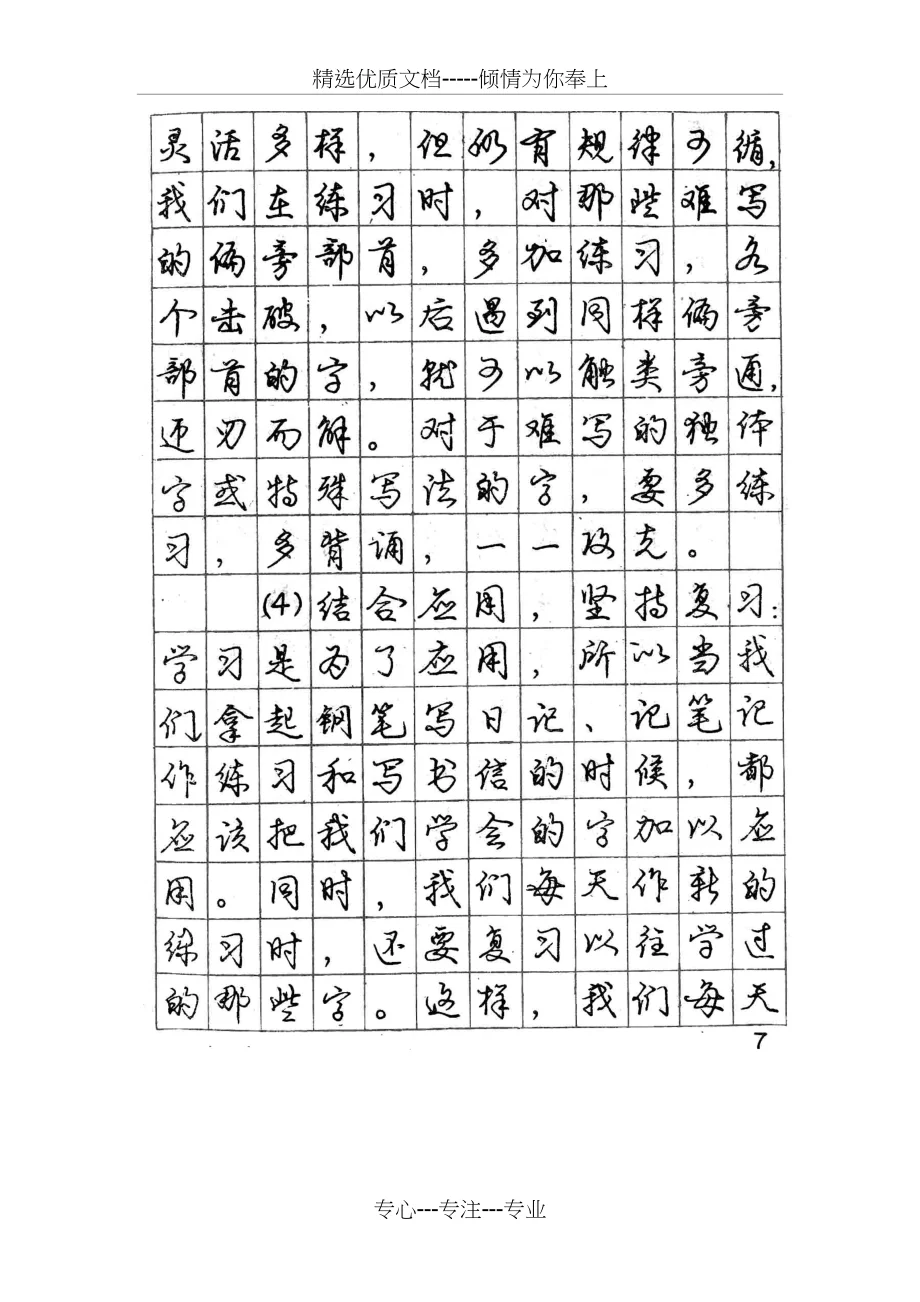 精选优质文档-----倾情为你奉上
灵活多样，但仍有规律可循，
我们在练习时，对那些难写
的偏旁部首，多加练习，各
个击破，以后遇到同样偏旁
部首的字，就可以触类旁通，
迎刃而解。对于难写的独体
字或特殊写法的字，要多练
习，多背诵，一一攻克。
(4)结合应用，坚持复习：
学习是为了应用，所以当我
们拿起钢笔写日记、记笔记
作练习和写书信的时候，都
应该把我们学会的字加以应
用。同时，我们每天作新的
练习时，还要复习以往学过
的那些字。这样，我们每天
7
专心---专注---专业